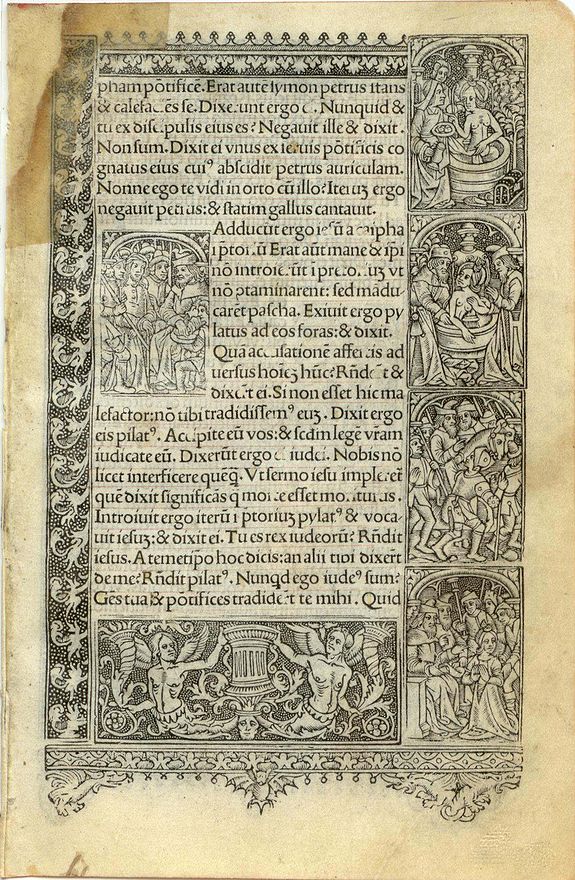 pham põtificẽ. Erat autẽ symon petrus stans
& calefaciẽs se. Dixerunt ergo ei. Nunquid &
tu ex discipulis eius es? Negavit ille & dixit.
Non sum. Dixit ei vnus ex seruis põtificis co
gnatus eius cuiꝰ abscidit petrus auriculam.
Nonne ego te vidi in orto cũ illo? Iteruʒ ergo
negauit petrus: & statim gallus cantauit.
Adducũt ergo iesũ a caipha
ĩ ptoriũ Erat autẽ mane & ipi
nõ introierũt ĩ pretoriuʒ vt
nõ ptaminarent: sed mãdu
caret pascha. Exiuit ergo py
latus ad eos foras: & dixit.
Quã accusationẽ affertis ad
uersus hoiẽʒ hũc? Rñderũt &
dixerũt ei. Si non esset hic ma
lefactor: nõ tibi tradidissemꝰ euʒ. Dixit ergo
eis pilatꝰ. Accipite eũ vos: & scdm legẽ vrãm
iudicate eũ. Dixerũt ergo ei iudei. Nobis nõ
licet interficere quẽq̃. Vt sermo iesu impleretˀ
quẽ dixit significãs q̃ morte esset moriturus.
Introiuit ergo iterũ ĩ ptoriuʒ pylatꝰ & voca-
uit iesuʒ: & dixit ei. Tu es rex iudeorũ? Rñdit
iesus. A temetipo hoc dicis: an alii tibi dixerũt
de me? Rñdit pilatꝰ. Nunqd ego iudeꝰ sum?
Gẽs tua & põtifices tradiderũt te mihi. Quid